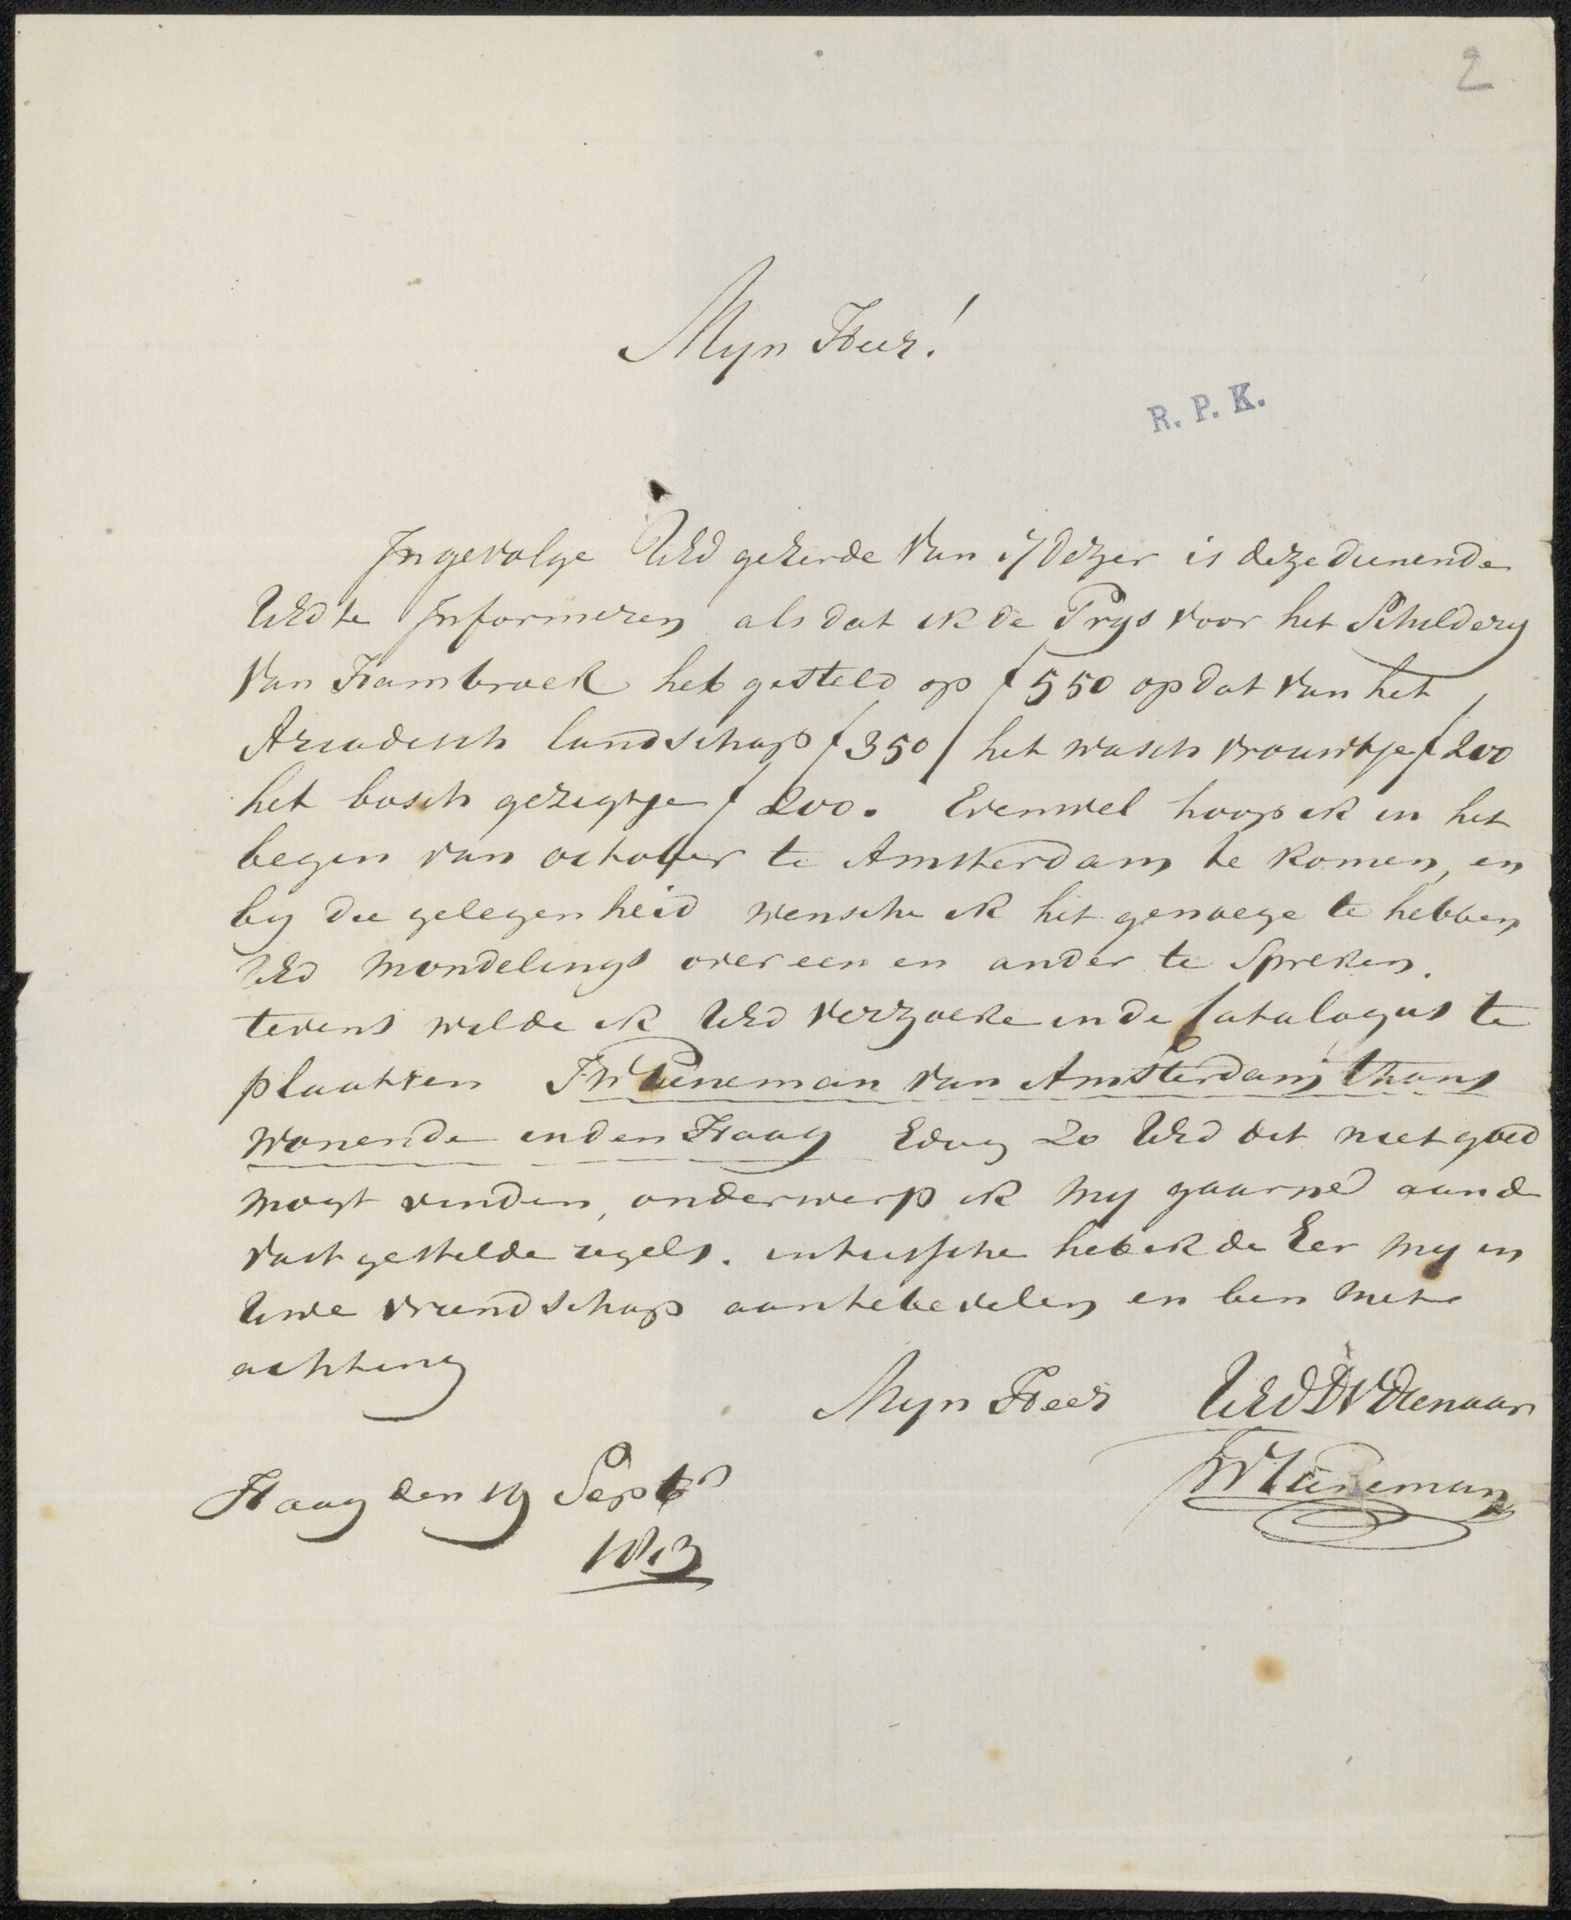 2
Myn Heer!
R. P. K.
Ingevolge UEd geEerde van 17 dezer is deze dienende
UEd te Informeren als dat ik de Prys voor het Schildery
van Hambroek heb gesteld op ƒ 550 op dat van het
Arcadisch landschap ƒ 350 / het wasch vrouwtje ƒ 200
het bosch gezigtje ƒ 200. Evenwel hoop ik in het
begin van october te Amsterdam te komen, en
by die gelegenheid wensche ik het genoege te hebben
UEd mondelings over een en ander te Spreken.
tevens wilde ik UEd verzoeke in de Catalogus te
plaatsen JW Pieneman van Amsterdam thans
wonende in den Haag Edog zo UEd dit niet goed
mogt vinden, onderwerp ik my gaarne aan de
vast gestelde regels. intussche heb ik de Eer my in
Uwe vriendschap aantebevelen en ben met
achting
Myn Heer UEd DW Dienaar
JW Pieneman
Haag den 19 Septbr
1813